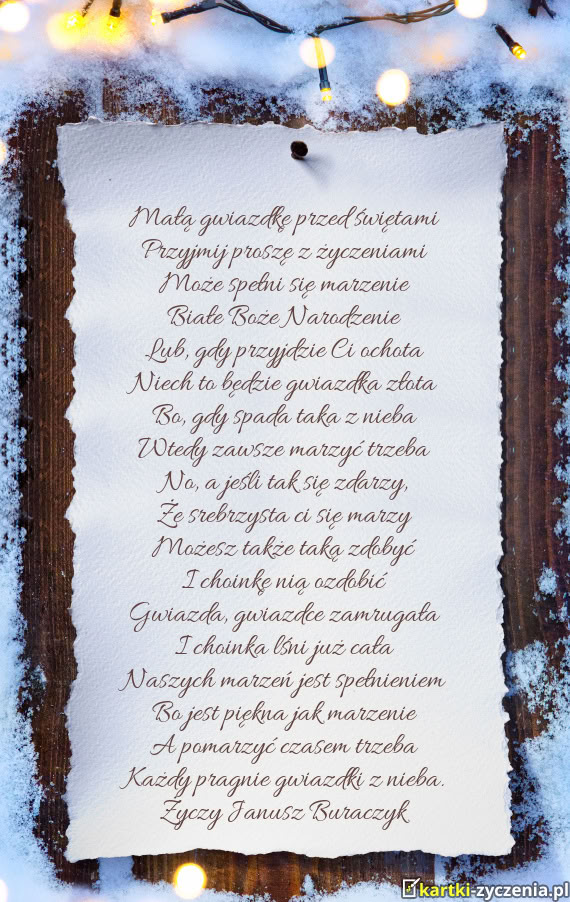 Małą gwiazdkę przed świętami
Przyjmij proszę z życzeniami
Może spełni się marzenie
Białe Boże Narodzenie
Lub, gdy przyjdzie Ci ochota
Niech to będzie gwiazdka złota
Bo, gdy spada taka z nieba
Wtedy zawsze marzyć trzeba
No, a jeśli tak się zdarzy,
Że srebrzysta ci się marzy
Możesz także taką zdobyć
I choinkę nią ozdobić
Gwiazda, gwiazdce zamrugała
I choinka lśni już cała
Naszych marzeń jest spełnieniem
Bo jest piękna jak marzenie
A pomarzyć czasem trzeba
Każdy pragnie gwiazdki z nieba.
Życzy Janusz Buraczyk
kartki-zyczenia.pl